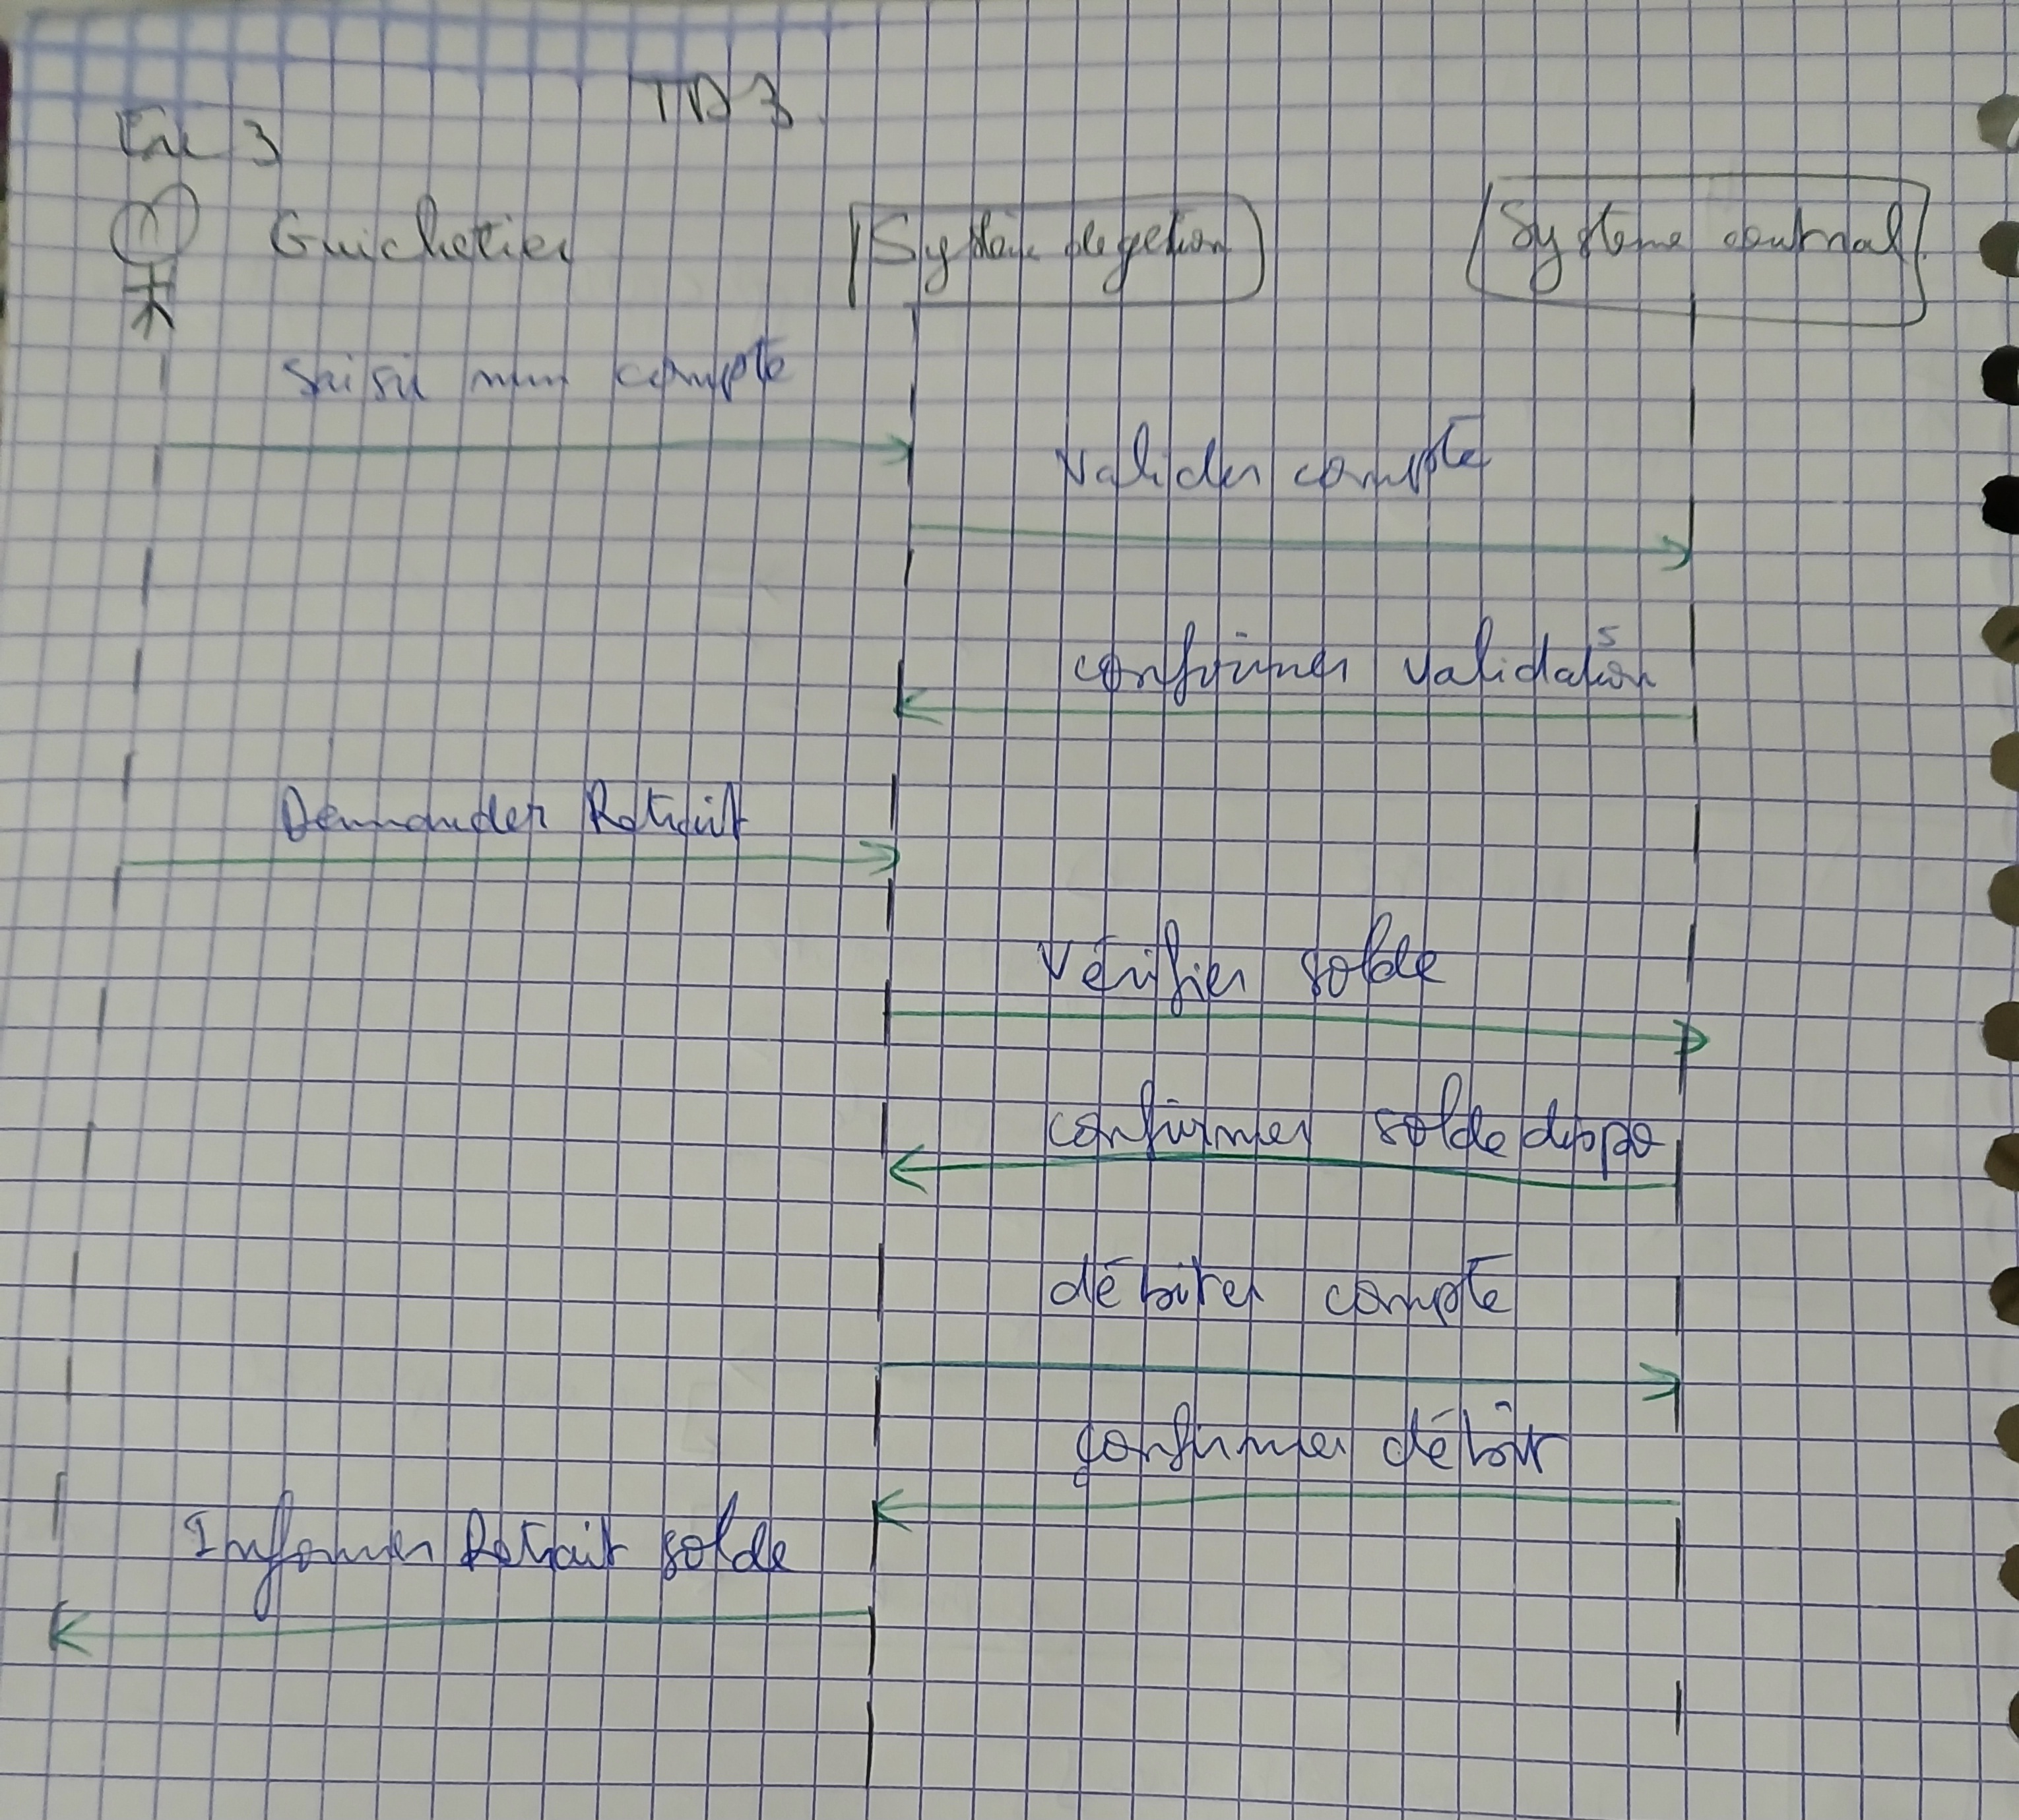 TD 3
Exe 3
Guichetier
Système de gestion
Système central
Saisir num compte
Valider compte
confirmer validation
Demander Retrait
Vérifier solde
confirmer solde dispo
débiter compte
confirmer débit
Informer Retrait solde